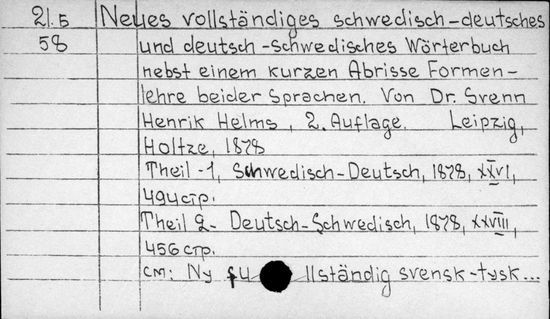 21.5 Neues vollständiges schwedisch-deutsches
58 und deutsch-schwedisches Wörterbuch
nebst einem kurzen Abrisse Formen-
lehre beider Sprachen. Von Dr. Svenn
Henrik Helms, 2. Auflage. Leipzig,
Holtze, 1878
Theil-1, Schwedisch-Deutsch, 1878, XXVI,
494 стр.
Theil 2- Deutsch-Schwedisch, 1878, XXVIII,
456 стр.
см: Ny fu llständig svensk-tysk...